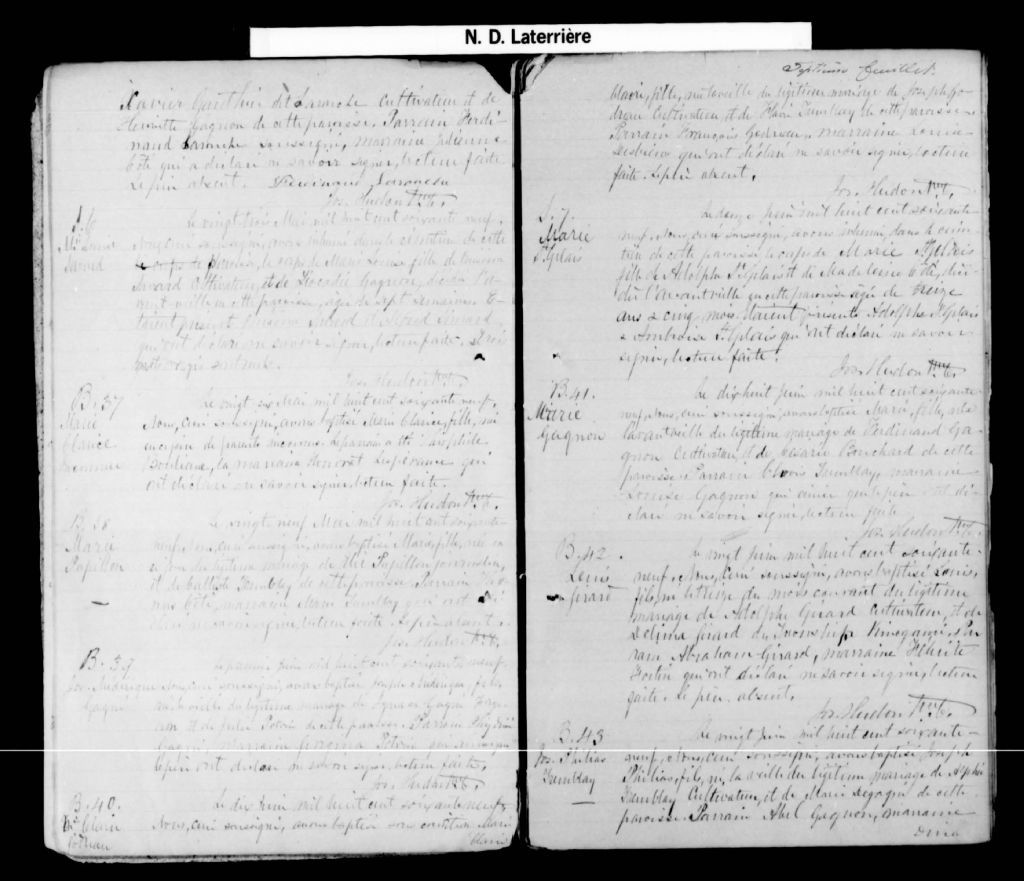 N. D. Laterrière
Xavier Gauthier dit Larouche Cultivateur et de
Henriette Gagnon de cette paroisse. Parrain Ferdi-
nand Larouche soussigné, marraine
Côté qui a déclaré ne savoir signer, lecture faite.
Le père absent. Ferdinand Larouche
Jos. Hudon Ptre C.
S. 6
Le vingt trois Mai mil huit cent soixante neuf,
Nous curé soussigné, avons inhumé dans le cimetière de cette
le corps de Marie Louise fille de
Cultivateur, et de Léocadie Gagnon, décédée l'a-
vant-veille en cette paroisse, âgée de sept semaines. E-
taient présents
qui ont déclaré ne savoir signer, lecture faite. Trois
mots rayés sont nuls.
Jos. Hudon Ptre C.
B. 37
Marie
Blanche
Le vingt six Mai mil huit cent soixante neuf,
Nous, curé soussigné, avons baptisé Marie Blanche, fille, née
en cette paroisse de parents inconnus. Le parrain a été Théophile
Boudreau, la marraine Honoré Lespérance qui
ont déclaré ne savoir signer, lecture faite.
Jos. Hudon Ptre C.
B. 38
Marie
Papillon
Le vingt neuf Mai mil huit cent soixante-
neuf, Nous, curé soussigné, avons baptisé Marie, fille, née ce
jour du légitime mariage de Papillon journalier,
et de Tremblay de cette paroisse. Parrain
Côté, marraine Marie Tremblay qui ont dé-
claré ne savoir signer, lecture faite. Le père absent.
Jos. Hudon Ptre C.
B. 39
Jos. Audérique
Gagné
Le premier Juin mil huit cent soixante neuf
Nous, curé soussigné, avons baptisé Joseph Audérique, fils,
né la veille du légitime mariage de Ignace Gagné Forge-
ron et de Julie Potvin de cette paroisse. Parrain
Gagné, marraine Georgina Potvin qui
le père ont déclaré ne savoir signer, lecture faite.
Jos. Hudon Ptre C.
B. 40.
Le dix Juin mil huit cent soixante neuf,
Nous, curé soussigné, avons baptisé sous condition Marie
Claire
Septième feuillet.
Claire, fille, née la veille du légitime mariage de Joseph Go-
dreau Cultivateur, et de Tremblay de cette paroisse.
Parrain François Godreau, marraine Louise
Desbiens qui ont déclaré ne savoir signer, lecture
faite. Le père absent.
Jos. Hudon Ptre C.
S. 7.
Marie
St Gelais
Le douze Juin mil huit cent soixante-
neuf, Nous, curé soussigné, avons inhumé dans le cime-
tière de cette paroisse le corps de Marie St Gelais
fille de Adolphe St Gelais et de Madeleine Côté, décé-
dée l'avant veille en cette paroisse âgée de treize
ans & cinq mois. Etaient présents Adolphe St Gelais
& Ambroise St Gelais qui ont déclaré ne savoir
signer, lecture faite.
Jos. Hudon Ptre C.
B. 41.
Marie
Gagnon
Le dix huit Juin mil huit cent soixante
neuf, Nous, curé soussigné, avons baptisé Marie, fille, née
l'avant veille du légitime mariage de Ferdinand Ga-
gnon Cultivateur, et de Césarie Bouchard de cette
paroisse. Parrain Clovis Tremblay, marraine
Louise Gagnon qui ainsi que le père ont dé-
claré ne savoir signer, lecture faite.
Jos. Hudon Ptre C.
B. 42.
Louis
Girard
Le vingt Juin mil huit cent soixante-
neuf, Nous, curé soussigné, avons baptisé Louis,
fils, né le treize du mois courant du légitime
mariage de Adolphe Girard Cultivateur, et de
Delphina Girard du Township Kénogami. Par-
rain Abraham Girard, marraine Félicité
Fortin qui ont déclaré ne savoir signer, lecture
faite. Le père absent.
Jos. Hudon Ptre C.
B. 43
Jos. Philias
Tremblay
Le vingt Juin mil huit cent soixante-
neuf, Nous, curé soussigné, avons baptisé Joseph
Philias, fils, né la veille du légitime mariage de
Tremblay Cultivateur, et de Marie Degagné de cette
paroisse. Parrain Abel Gagnon, marraine
Dina